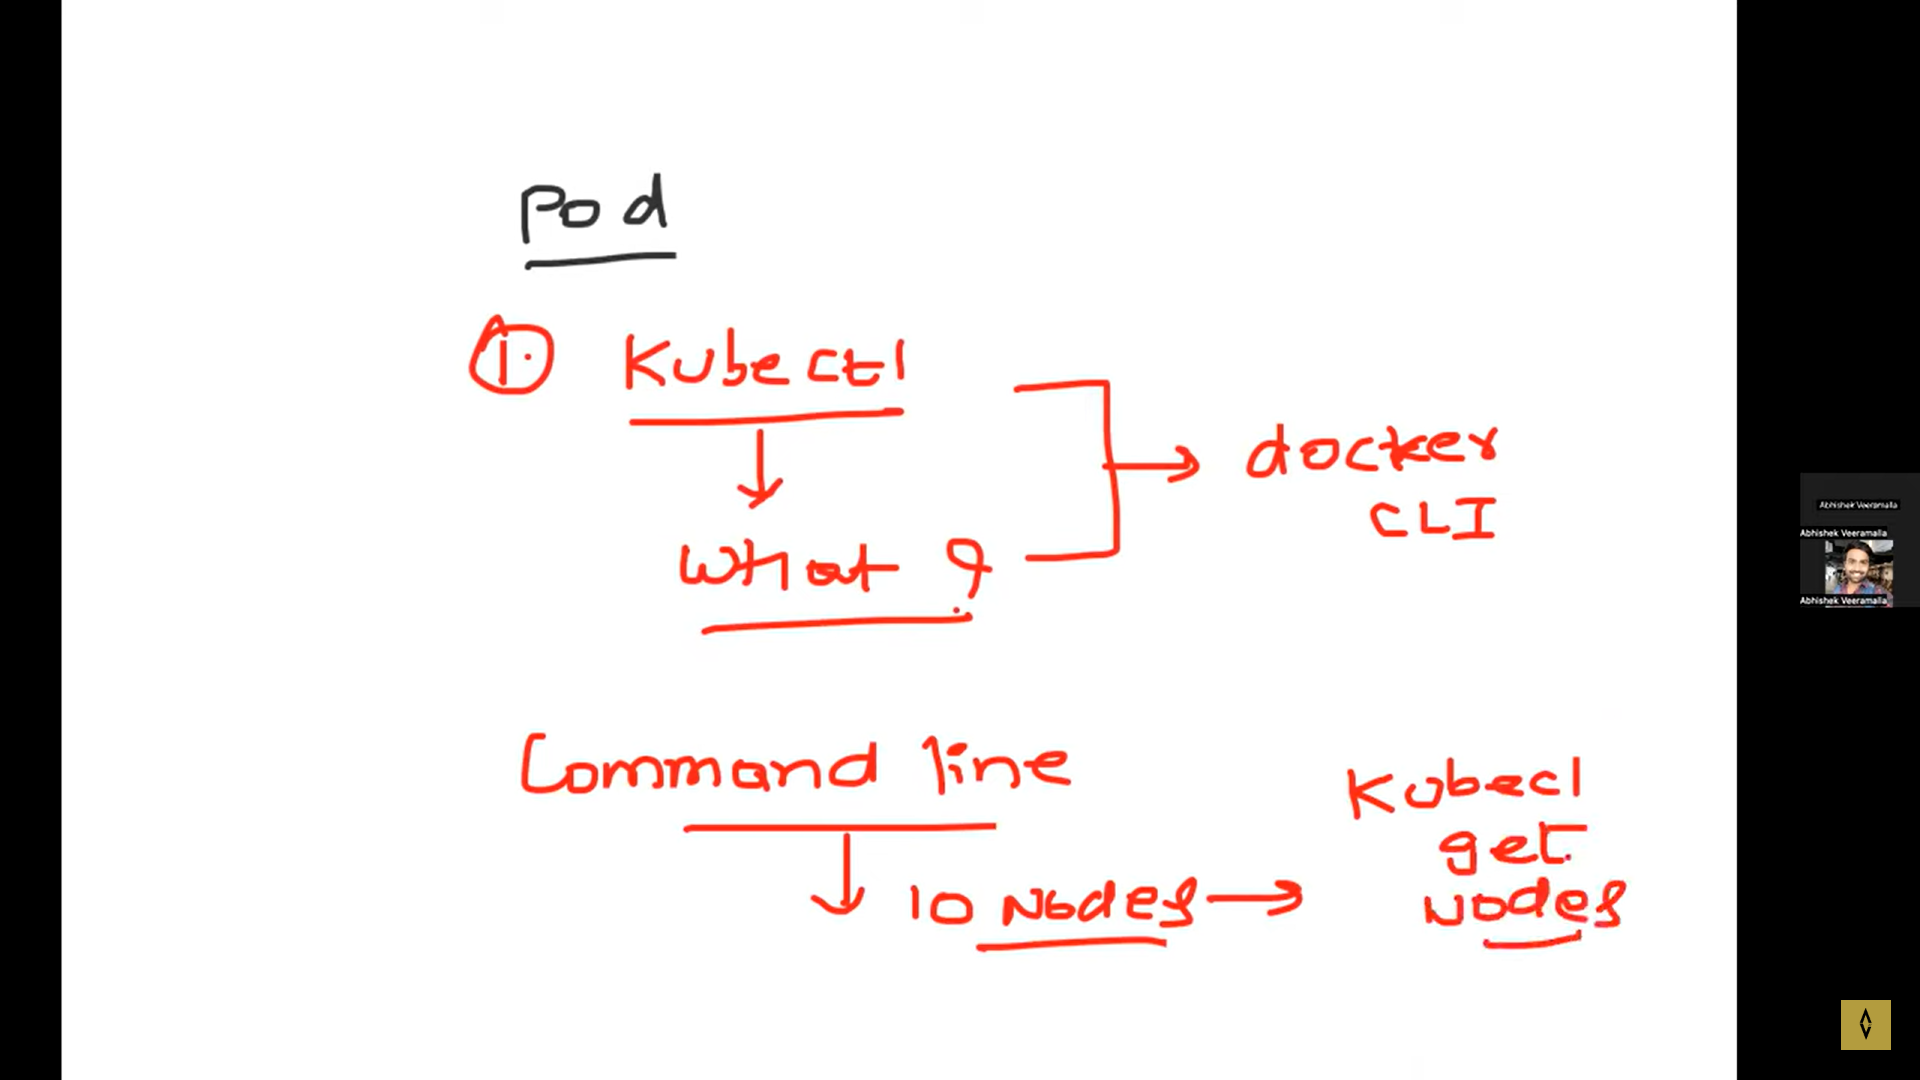 Pod
1. Kubectl
What ?
docker
CLI
Command line
10 Nodes
Kubecl
get
Nodes
Abhishek Veeramalla
Abhishek Veeramalla
Abhishek Veeramalla